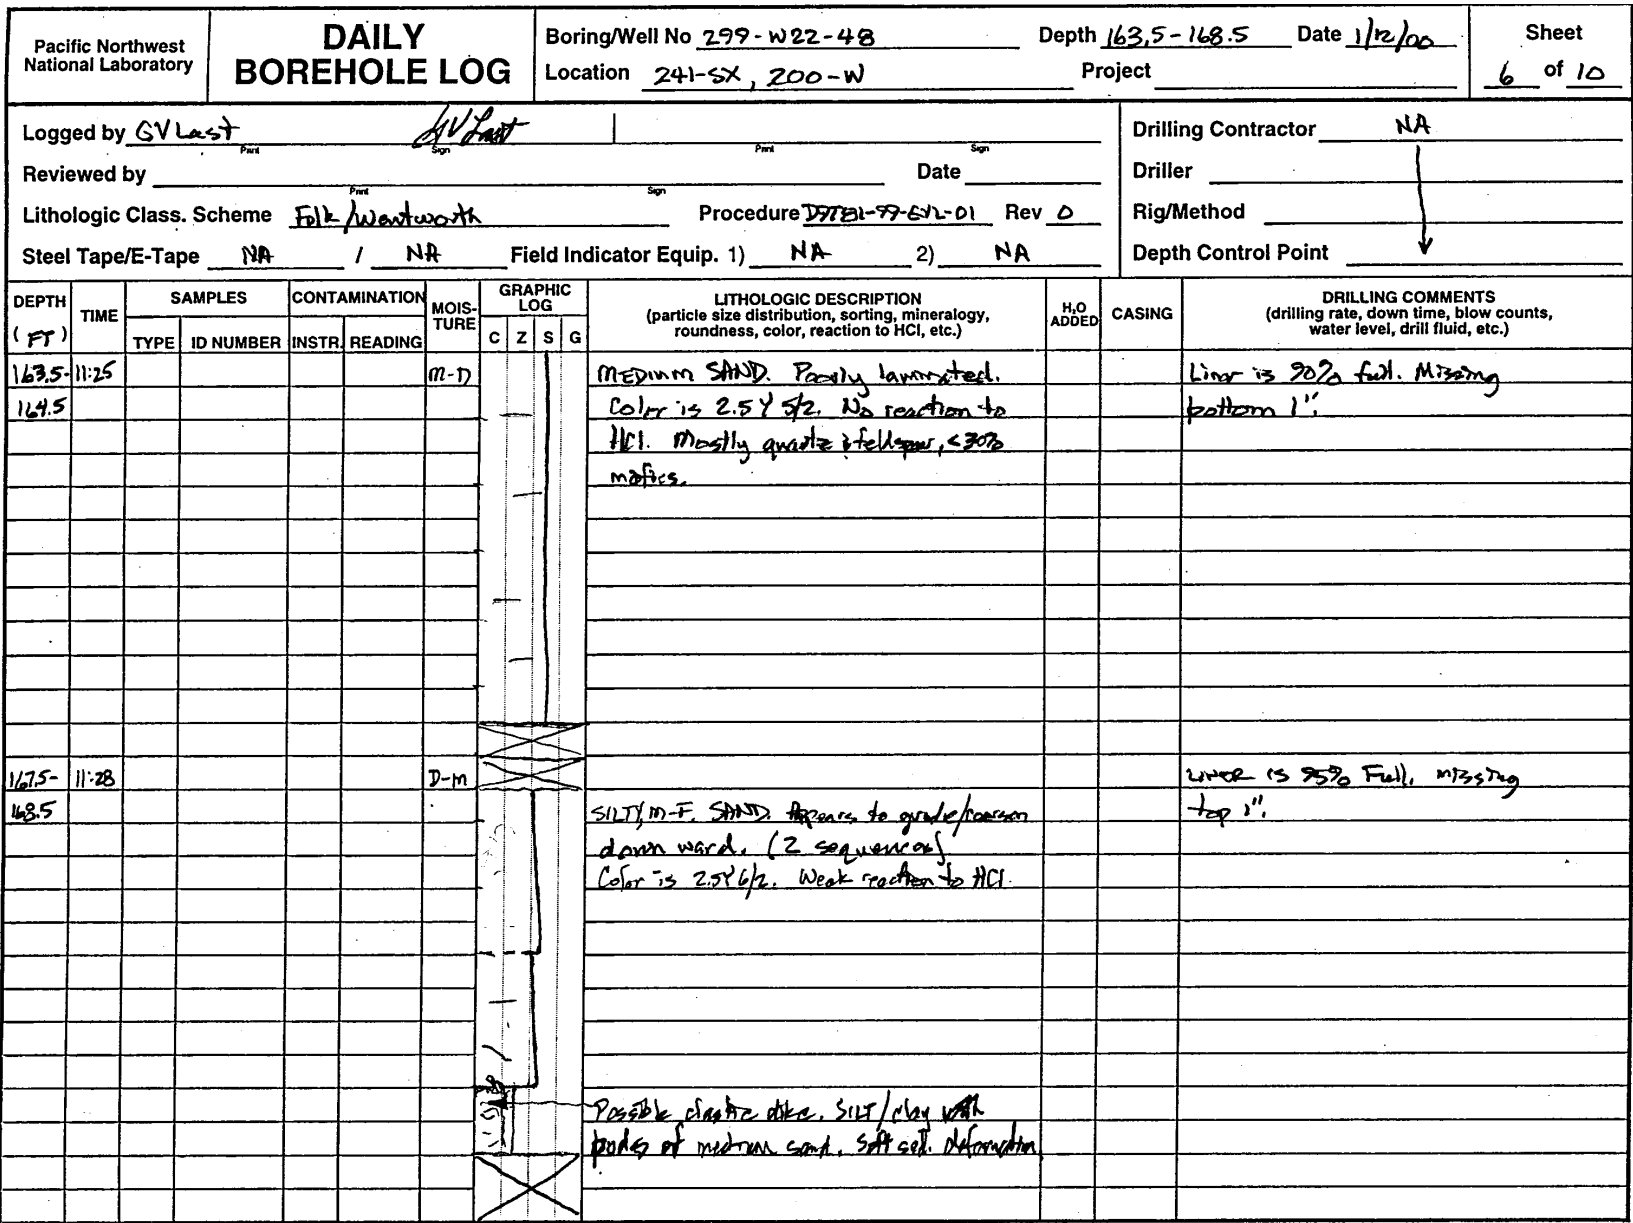 Pacific Northwest
National Laboratory
DAILY
BOREHOLE LOG
Boring/Well No 299-W22-48 Depth 163.5-168.5 Date 1/12/00
Location 241-SX, 200-W Project
Sheet
6 of 10
Logged by GV Last GV Last
Print Sign Print Sign
Reviewed by Date
Print Sign
Lithologic Class. Scheme Folk/Wentworth Procedure Rev 0
Steel Tape/E-Tape NA / NA Field Indicator Equip. 1) NA 2) NA
Drilling Contractor NA
Driller
Rig/Method
Depth Control Point
DEPTH
(FT)
TIME
SAMPLES
TYPE ID NUMBER
CONTAMINATION
INSTR. READING
MOIS-
TURE
GRAPHIC
LOG
C Z S G
LITHOLOGIC DESCRIPTION
(particle size distribution, sorting, mineralogy,
roundness, color, reaction to HCl, etc.)
H2O
ADDED
CASING
DRILLING COMMENTS
(drilling rate, down time, blow counts,
water level, drill fluid, etc.)
163.5- 11:25 M-D MEDIUM SAND. Poorly laminated. Liner is 90% full. Missing
164.5 Color is 2.5Y 5/2. No reaction to bottom 1".
HCl. Mostly quartz & feldspar, <30%
mafics.
167.5- 11:28 D-M LINER IS 95% Full. Missing
168.5 SILTY, M-F. SAND. Appears to grade/coarsen top 1".
down ward. (2 sequences)
Color is 2.5Y 6/2. Weak reaction to HCl.
Possible clastic dike. SILT/clay with
pods of medium sand. Soft sed. deformation